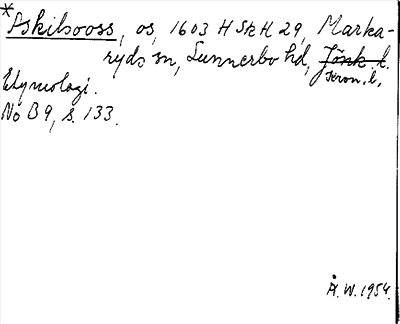 *Askilsooss, os, 1603 HSkH 29, Marka-
ryds sn, Sunnerbo hd, Jönk. l.
Kron. l.
Etymologi.
No B 9, s. 133.
Å.W. 1954.